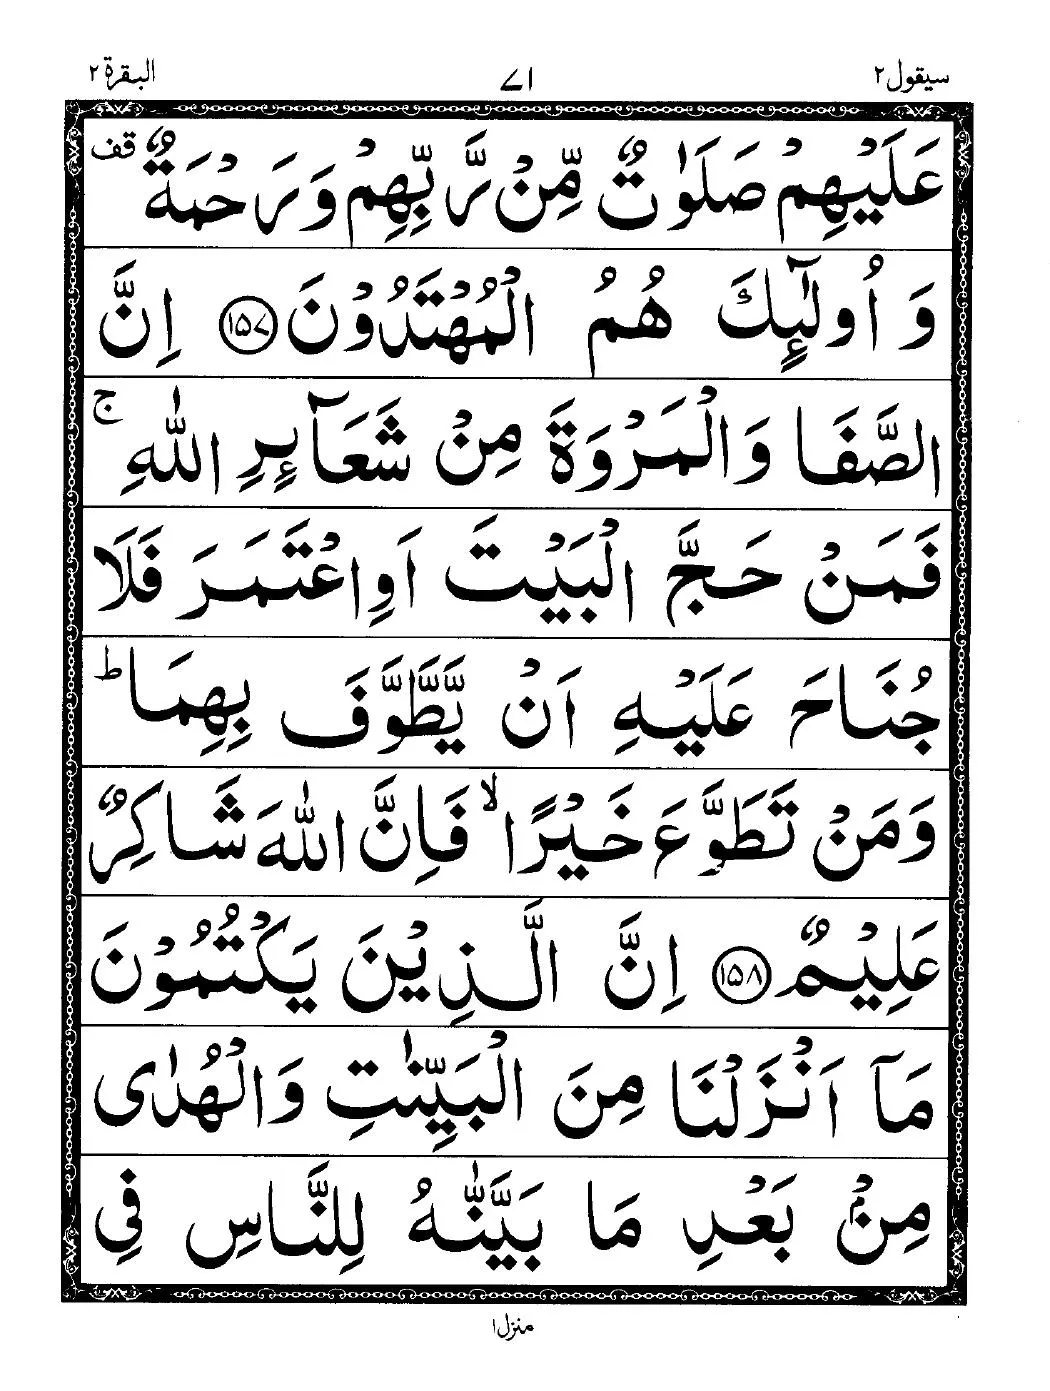 سیقول ۲ ۷۱ البقرة ۲
عَلَيْهِمْ صَلَوٰتٌ مِّنْ رَّبِّهِمْ وَرَحْمَةٌ قف
وَ اُولٰٓئِكَ هُمُ الْمُهْتَدُوْنَ ۱۵۷ اِنَّ
الصَّفَا وَالْمَرْوَةَ مِنْ شَعَآئِرِ اللّٰهِ ج
فَمَنْ حَجَّ الْبَيْتَ اَوِاعْتَمَرَ فَلَا
جُنَاحَ عَلَيْهِ اَنْ يَّطَّوَّفَ بِهِمَا ط
وَمَنْ تَطَوَّعَ خَيْرًا لا فَاِنَّ اللّٰهَ شَاكِرٌ
عَلِيْمٌ ۱۵۸ اِنَّ الَّذِيْنَ يَكْتُمُوْنَ
مَآ اَنْزَلْنَا مِنَ الْبَيِّنٰتِ وَالْهُدٰى
مِنْۢ بَعْدِ مَا بَيَّنّٰهُ لِلنَّاسِ فِي
منزل ۱